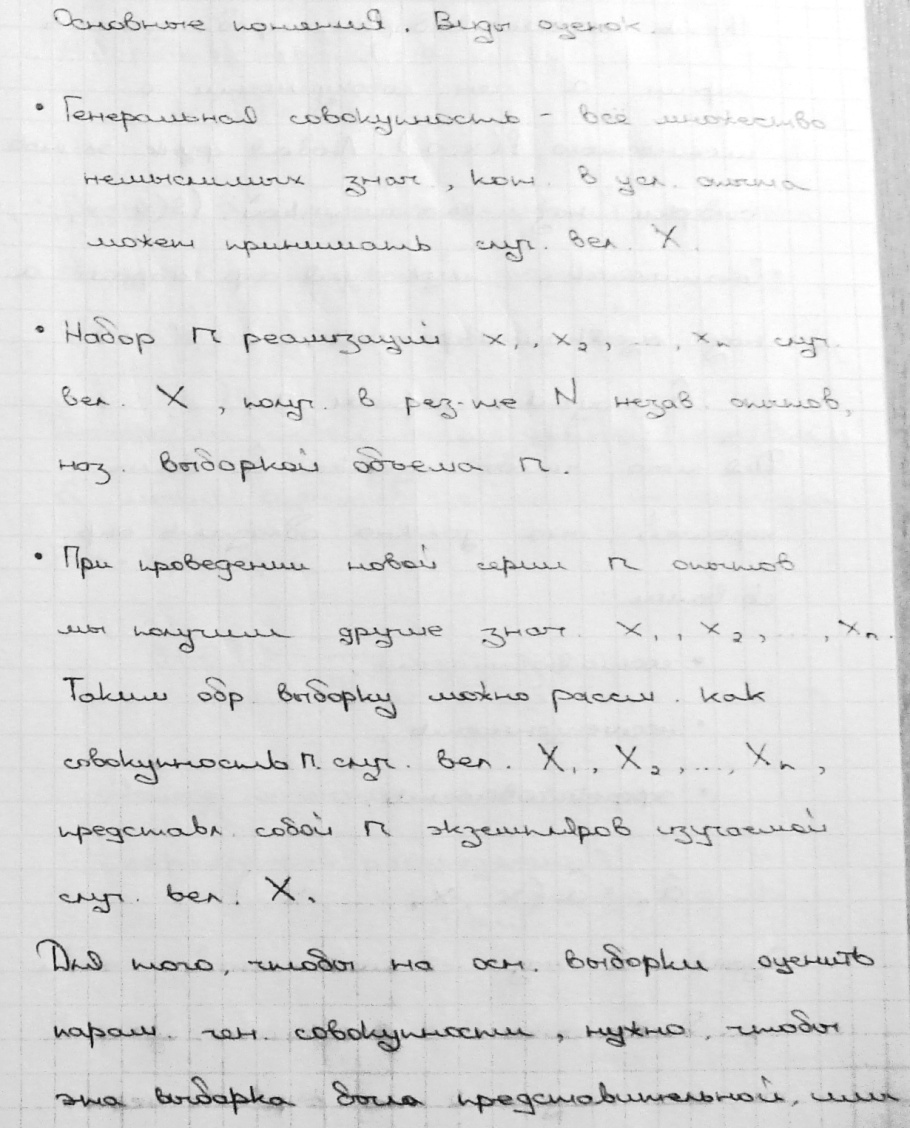 Основные понятия. Виды оценок
• Генеральная совокупность - всё множество
немыслимых знач, кот. в усл. опыта
может принимать случ. вел. X.
• Набор n реализаций x₁ x₂, ..., xₙ случ.
вел. X, получ. в рез-те N незав. опытов,
наз выборкой объема n.
• При проведении новой серии n опытов
мы получим другие знач. x₁, x₂, ..., xₙ.
Таким обр выборку можно рассм. как
совокупность n случ. вел. X₁, X₂, ..., Xₙ,
представл. собой n экземпляров изучаемой
случ. вел. X.
Для того, чтобы на осн. выборки оценить
парам. ген. совокупности, нужно, чтобы
эта выборка была представительной, или